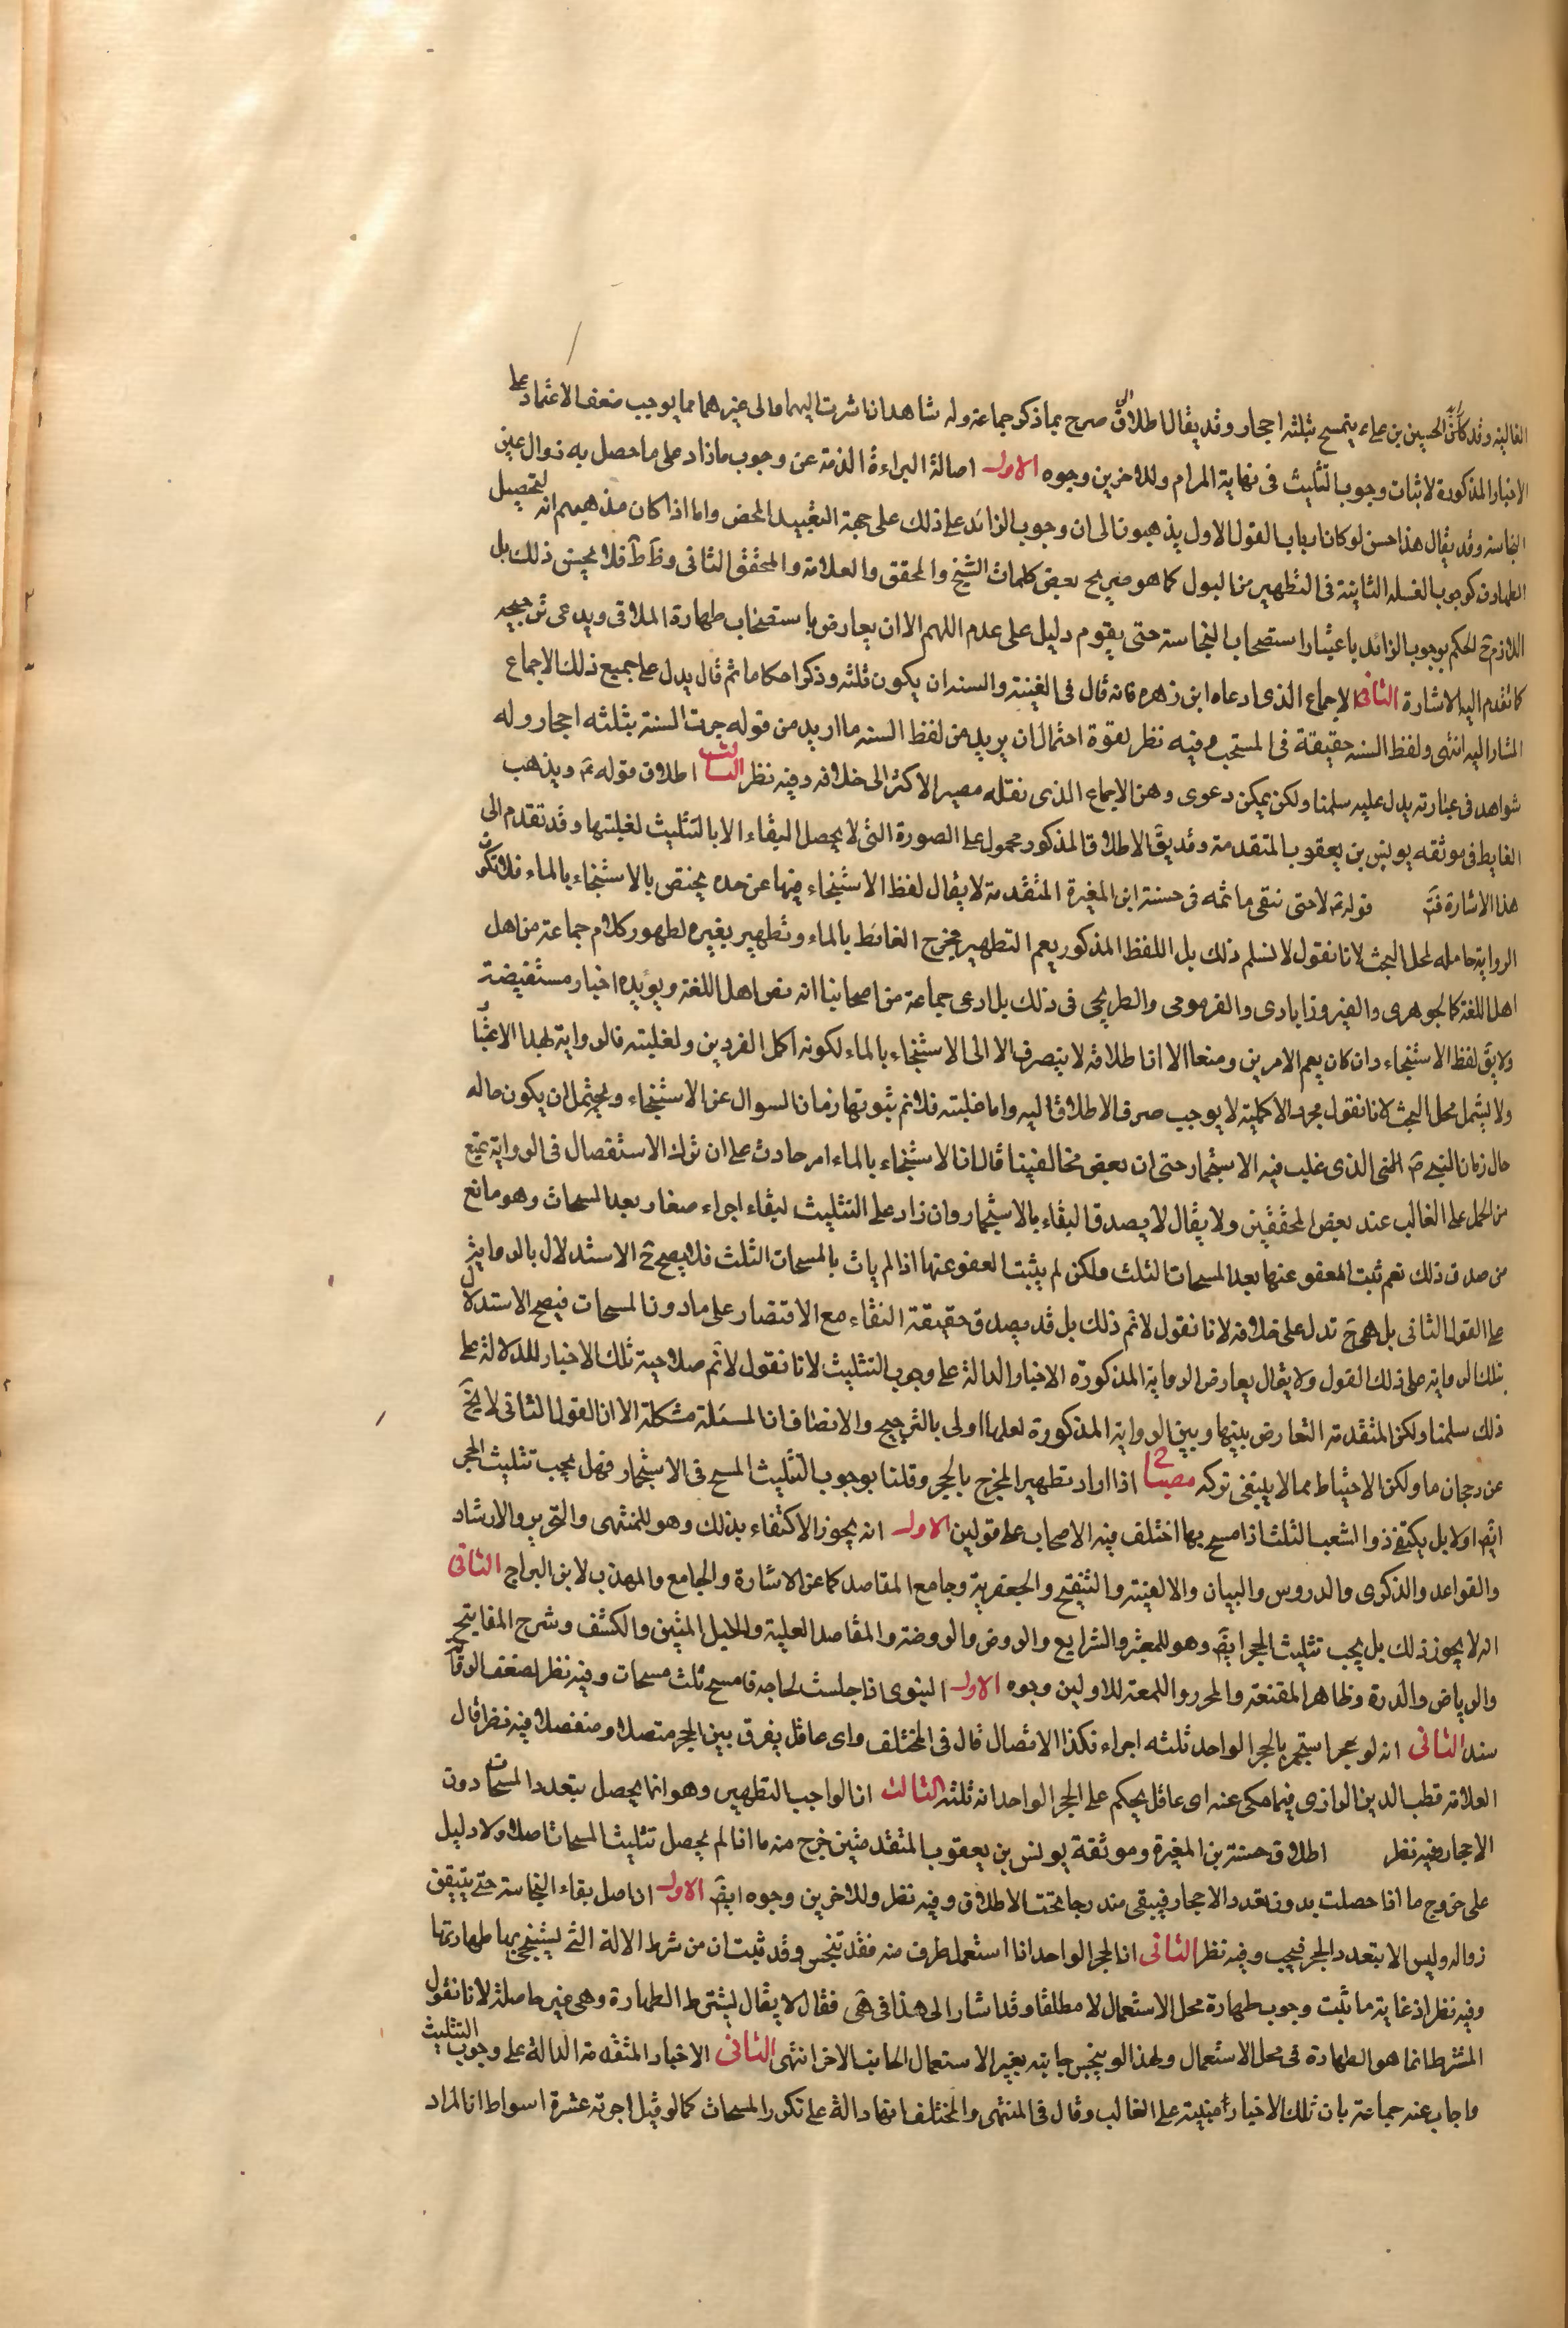 الغالبة وقد كان الحسين بن علي ع يتمسح بثلثة احجار وقد يقال اطلاق صرح بما ذكر جماعة وله شاهدان اشرت اليهما والى غيرهما مما يوجب ضعف الاعتماد على
الاخبار المذكورة لاثبات وجوب التثليث فى نهاية المرام وللاخرين وجوه الاول اصالة البراءة الذمة عن وجوب مازاد على ما حصل به زوال عين
النجاسة وقد يقال هذا حسن لو كان ارباب القول الاول يذهبون الى ان وجوب الزائد على ذلك على جهة التعبد المحض واما اذا كان مذهبهم انه لتحصيل
الطهارة كوجوب الغسلة الثانية فى التطهير من البول كما هو صريح بعض كلمات الشيخ والمحقق والعلامة والمحقق الثانى وظ فلا يحسن ذلك بل
اللازم ح الحكم بوجوب الزائد باعتبار استصحاب النجاسة حتى يقوم دليل على عدم اللهم الا ان يعارض باستصحاب طهارة الملاقى ويدعى ترجيحه
كما تقدم اليه الاشارة الثانى الاجماع الذى ادعاه ابن زهره فانه قال فى الغنية والسنة ان يكون ثلثة وذكر احكاما ثم قال يدل على جميع ذلك الاجماع
المشار اليه انتهى ولفظ السنة حقيقة فى المستحب وفيه نظر لقوة احتمال ان يريد من لفظ السنة ما اريد من قوله جرت السنة بثلثة احجار وله
شواهد فى عبارته يدل عليه سلمنا ولكن يمكن دعوى وهن الاجماع الذى نقله مصير الاكثر الى خلافه وفيه نظر الثالث اطلاق قوله ع ويذهب
الغايط فى موثقة يونس بن يعقوب المتقدمة وقد يق الاطلاق المذكور محمول على الصورة التى لا يحصل النقاء الا بالتثليث لغلبتها وقد تقدم الى
هذا الاشارة فت قوله ع لا حتى ينقى ما ثمه فى حسنة ابن المغيرة المتقدمة لا يقال لفظ الاستنجاء فيها عن حده يختص بالاستنجاء بالماء فلا تكون
الرواية حاملة لمحل البحث لانا نقول لا نسلم ذلك بل اللفظ المذكور يعم التطهير مخرج الغائط بالماء وتطهير بغيره لظهور كلام جماعة من اهل
اهل اللغة كالجوهرى والفيروزابادى والفيومى والطريحى فى ذلك بل ادعى جماعة من اصحابنا انه نص اهل اللغة ويؤيده اخبار مستفيضة
ولا يق لفظ الاستنجاء وان كان يعم الامرين وضعا الا ان اطلاقه لا ينصرف الا الى الاستنجاء بالماء لكونه اكمل الفردين ولغلبته فالرواية بهذا الاعتبار
ولا يشمل محل البحث لانا نقول مجرد الاكملية لا يوجب صرف الاطلاق اليه واما غلبته فلا نم ثبوتها زمان السوال عن الاستنجاء ويحتمل ان يكون حاله
حال زمان النبى ص الذى غلب فيه الاستجمار حتى ان بعض مخالفينا قال ان الاستنجاء بالماء امر حادث على ان ترك الاستفصال فى الرواية يمنع
من الحمل على الغالب عند بعض المحققين ولا يقال لا يصدق النقاء بالاستجمار وان زاد على التثليث لبقاء اجزاء صغار بعد المسحات وهو مانع
من صدق ذلك نعم ثبت المعفو عنها بعد المسحات الثلث ولكن لم يثبت العفو عنها اذا لم يات بالمسحات الثلث فلا يصح ح الاستدلال بالرواية
على القول الثانى بل هى ح تدل على خلافه لانا نقول لا نم ذلك بل قد يصدق حقيقة النقاء مع الاقتصار على مادون المسحات فيصح الاستدلال
بتلك الرواية على ذلك القول ولا يقال يعارض الرواية المذكورة الاخبار الدالة على وجوب التثليث لانا نقول لا نم صلاحية تلك الاخبار للدلالة على
ذلك سلمنا ولكن المتقدمة التعارض بينها وبين الرواية المذكورة لعلها اولى بالترجيح والانصاف ان المسئلة مشكلة الا ان القول الثانى لا يخ
عن رجحان ما ولكن الاحتياط مما لا ينبغى تركه مصباح اذا اراد تطهير المخرج بالحجر وقلنا بوجوب التثليث المسح فى الاستجمار فهل يجب تثليث الحجر
ايض اولا بل يكتفى ذو الشعب الثلث اذا مسح بها اختلف فيه الاصحاب على قولين الاول انه يجوز الاكتفاء بذلك وهو للمنتهى والتحرير والارشاد
والقواعد والذكرى والدروس والبيان والالفية والتنقيح والجعفرية وجامع المقاصد كما عن الاشارة والجامع والمهذب لابن البراج الثانى
انه لا يجوز ذلك بل يجب تثليث الحجر ايض وهو للمعتبر والشرايع والروض والروضة والمقاصد العلية والحبل المتين والكشف وشرح المفاتيح
والرياض والدرة وظاهر المقنعة والمحرر واللمعة للاولين وجوه الاول النبوى اذا جلست لحاجة فامسح ثلث مسحات وفيه نظر لضعف الرواية
سندا الثانى انه لو استجمر بالحجر الواحد ثلثة اجزاء فكذا الاتصال قال فى المختلف واى عاقل يفرق بين الحجر متصلا ومنفصلا فيه نظر قال
العلامة قطب الدين الرازى فيما حكى عنه اى عاقل يحكم على الحجر الواحد انه ثلثة الثالث ان الواجب التطهير وهو انما يحصل بتعدد المسحات دون
الاحجار فيه نظر اطلاق حسنة بن المغيرة وموثقة يونس بن يعقوب المتقدمتين خرج منه ما اذا لم يحصل تثليث المسحات اصلا ولا دليل
على خروج ما اذا حصلت بدون تعدد الاحجار فيبقى مندرجا تحت الاطلاق وفيه نظر وللاخرين وجوه ايض الاول ان اصل بقاء النجاسة حتى يتيقن
زواله وليس الا بتعدد الحجر فيجب وفيه نظر الثانى ان الحجر الواحد اذا استعمل طرف منه فقد تنجس وقد ثبت ان من شرط الالة التى يستنجى بها طهارتها
وفيه نظر اذ غاية ما ثبت وجوب طهارة محل الاستعمال لا مطلقا وقد اشار الى هذا فى هى فقال لا يقال يشترط الطهارة وهى غير حاصلة لانا نقول
المشترط انما هو الطهارة فى محل الاستعمال ولهذا لو ينجس جانبه بغير الاستعمال الجانب الاخر انتهى الثانى الاخبار المتقدمة الدالة على وجوب التثليث
واجاب عنه جماعة بان تلك الاخبار مبنية على الغالب وقال فى المنتهى والمختلف انها دالة على تكرر المسحات كما لو قيل اجزته عشرة اسواط اذ المراد